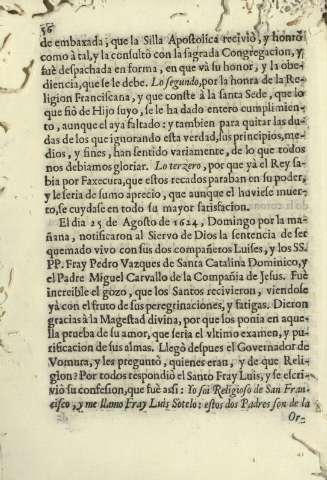 56
de embaxada; que la Silla Apostolica recivió, y honrò
como à tal, y la consultò con la sagrada Congregacion, y
fuè despachada en forma, en que và su honor, y la obe-
diencia, que se le debe. Lo segundo, por la honra de la Re-
ligion Franciscana, y que conste à la santa Sede, que lo
que fiò de Hijo suyo, se le ha dado entero cumplimien-
to, aunque el aya faltado: y tambien para quitar las du-
das de los que ignorando esta verdad, sus principios, me-
dios, y fines, han sentido variamente, de lo que todos
nos debiamos gloriar. Lo terzero, por que yà el Rey sa-
bia por Faxecura, que estos recados paraban en su poder,
y le seria de sumo aprecio, que aunque el huviese muer-
to, se cuydase en todo su mayor satisfacion.
El dia 25 de Agosto de 1624, Domingo por la ma-
ñana, notificaron al Siervo de Dios la sentencia de ser
quemado vivo con sus dos compañeros Luises, y los SS.
PP. Fray Pedro Vazques de Santa Catalina Dominico, y
el Padre Miguel Carvallo de la Compañia de Jesus. Fuè
increible el gozo, que los Santos recivieron, viendose
yà con el fruto de sus peregrinaciones, y fatigas. Dieron
gracias à la Magestad divina, por que los ponia en aque-
lla prueba de su amor, que seria el vltimo examen, y pu-
rificacion de sus almas. Llegò despues el Governador de
Vomura, y les preguntò, quienes eran, y de que Reli-
gion? Por todos respondiò el Santo Fray Luis, y se escri-
viò su confesion, que fuè assi: Yo soi Religioso de San Fran-
cisco, y me llamo Fray Luis Sotelo: estos dos Padres son de la
Or-